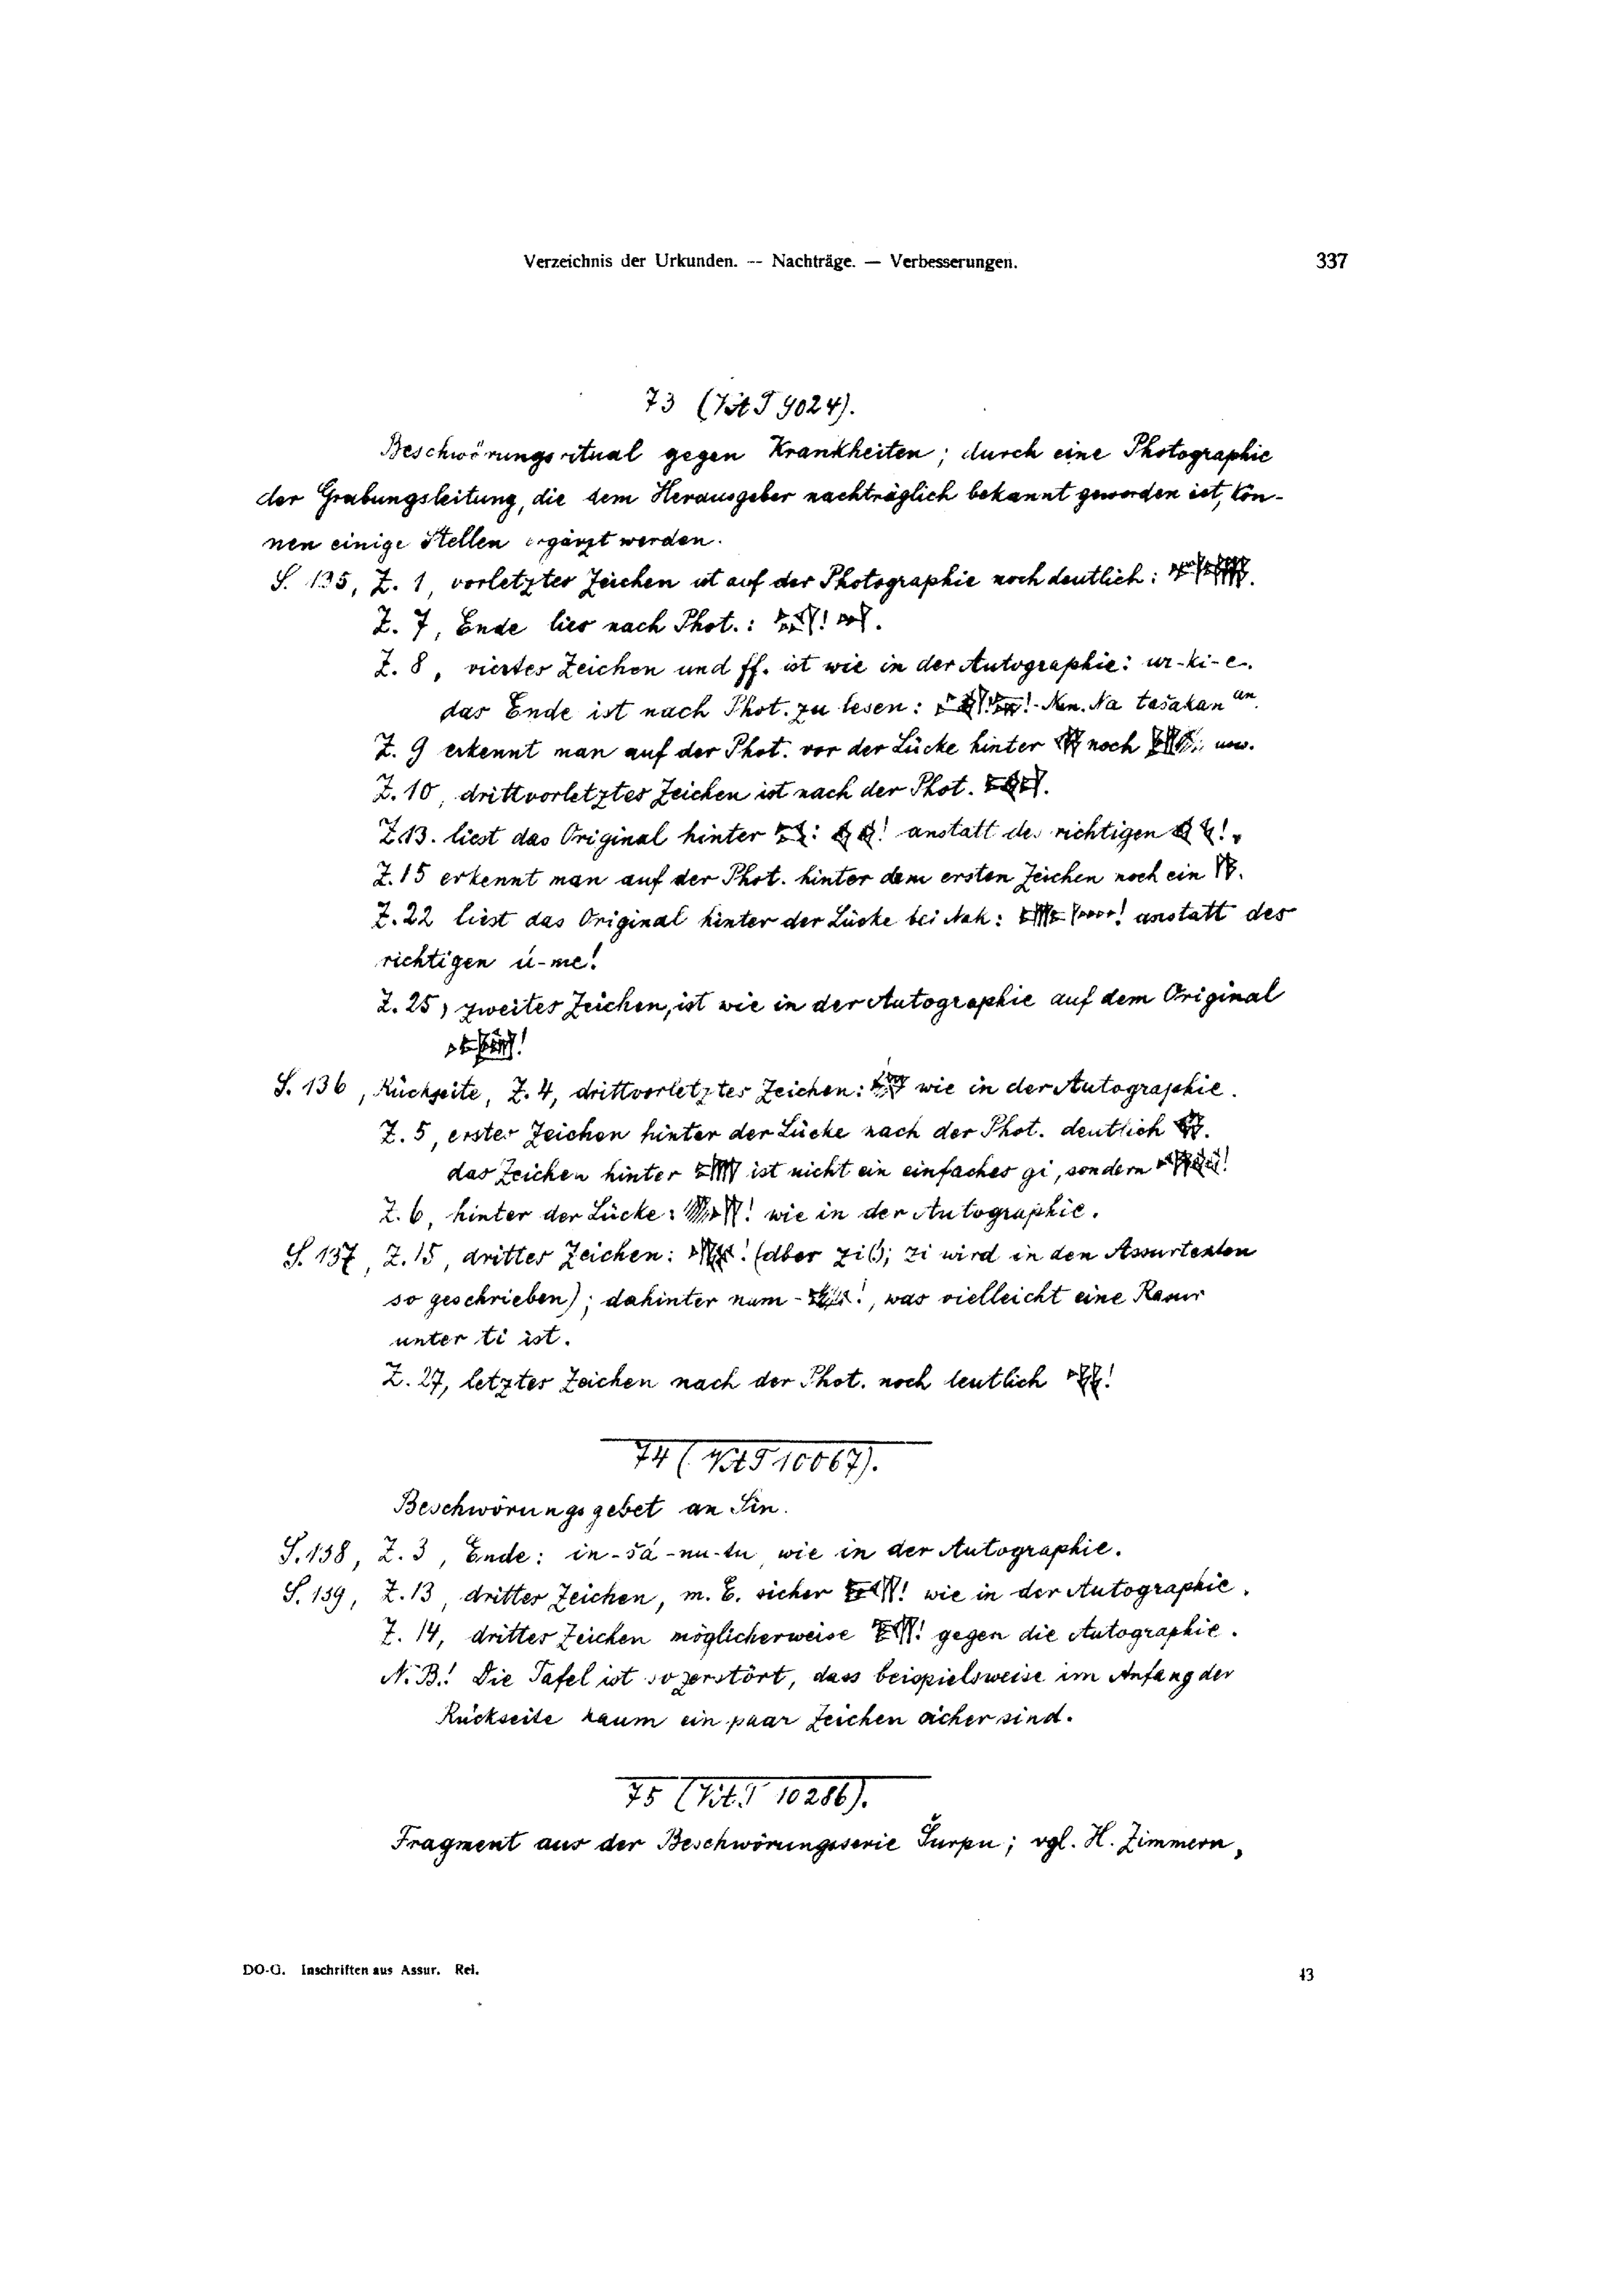 Verzeichnis der Urkunden. -- Nachträge. — Verbesserungen. 337
73 (VAT 9024).
Beschwörungsritual gegen Krankheiten; durch eine Photographie
der Grabungsleitung, die dem Herausgeber nachträglich bekannt geworden ist, kön-
nen einige Stellen ergänzt werden.
S. 135, Z. 1, vorletztes Zeichen ist auf der Photographie noch deutlich:
Z. 7, Ende lies nach Phot.:
Z. 8, viertes Zeichen und ff. ist wie in der Autographie: ur-ki-e.
das Ende ist nach Phot. zu lesen: Na tašakan an.
Z. 9 erkennt man auf der Phot. vor der Lücke hinter noch usw.
Z. 10, drittvorletztes Zeichen ist nach der Phot.
Z. 13. liest das Original hinter : ! anstatt des richtigen !
Z. 15 erkennt man auf der Phot. hinter dem ersten Zeichen noch ein
Z. 22 liest das Original hinter der Lücke bei : ! anstatt des
richtigen ú-me!
Z. 25, zweites Zeichen, ist wie in der Autographie auf dem Original
S. 136, Rückseite, Z. 4, drittvorletztes Zeichen: wie in der Autographie.
Z. 5, erstes Zeichen hinter der Lücke nach der Phot. deutlich
das Zeichen hinter ist nicht ein einfaches gi, sondern
Z. 6, hinter der Lücke: ! wie in der Autographie.
S. 137, Z. 15, drittes Zeichen: ! ; zi wird in den Assurtexten
so geschrieben); dahinter num- !, was vielleicht eine Rasur
unter ti ist.
Z. 27, letztes Zeichen nach der Phot. noch deutlich !
74 (VAT 10067).
Beschwörungsgebet an Sin.
S. 138, Z. 3, Ende: in-šá-nu-tu wie in der Autographie.
S. 139, Z. 13, drittes Zeichen, m. E. sicher ! wie in der Autographie.
Z. 14, drittes Zeichen möglicherweise ! gegen die Autographie.
N. B.! Die Tafel ist so zerstört, dass beispielsweise im Anfang der
Rückseite kaum ein paar Zeichen sicher sind.
75 (VAT 10286).
Fragment aus der Beschwörungsserie Šurpu; vgl. H. Zimmern,
DO-G. Inschriften aus Assur. Rel. 43